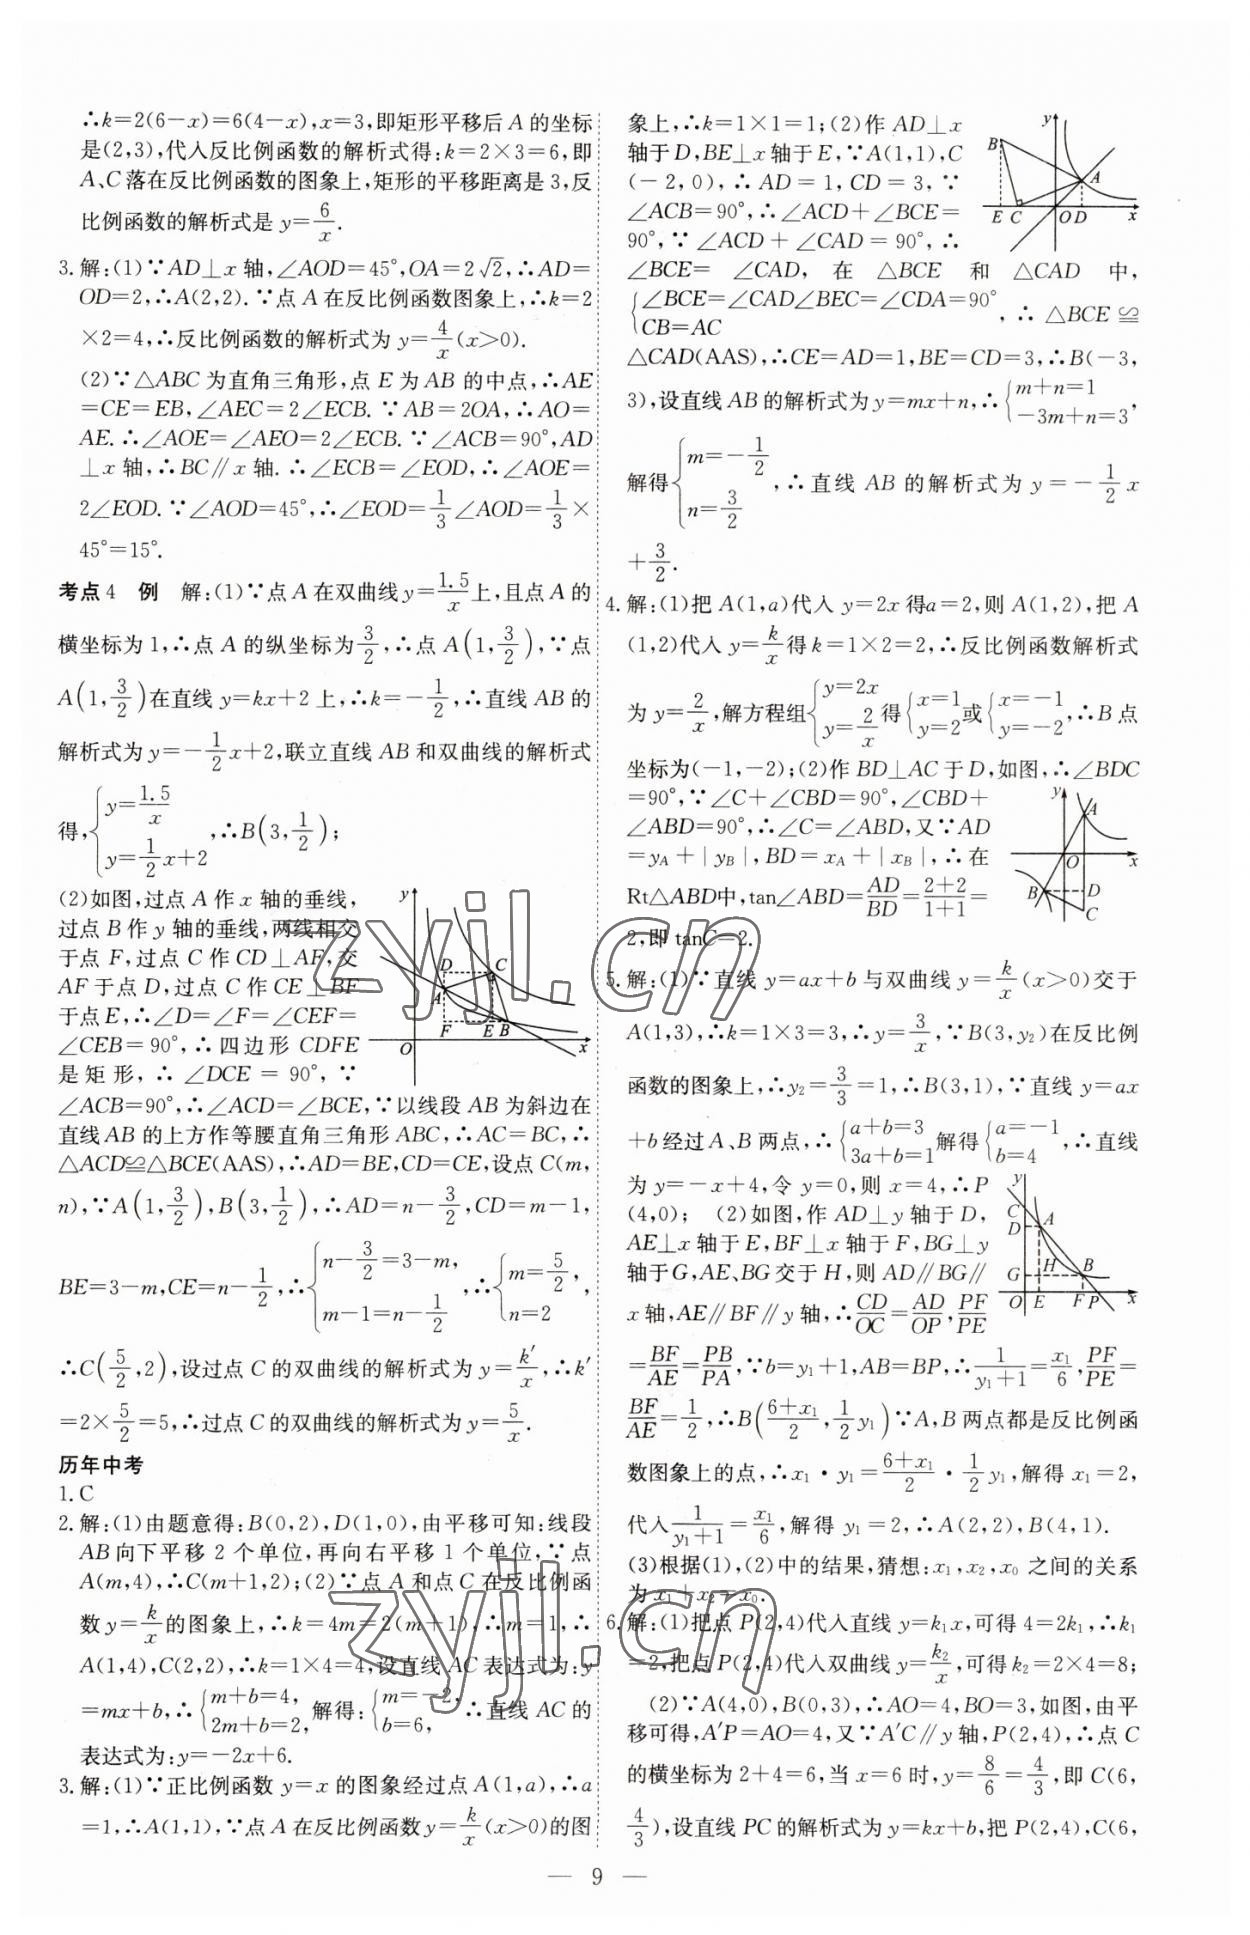 ∴k=2(6-x)=6(4-x),x=3,即矩形平移后 A 的坐标
是(2,3),代入反比例函数的解析式得:k=2×3=6,即
A、C 落在反比例函数的图象上,矩形的平移距离是 3,反
比例函数的解析式是 y=6/x.
3. 解:(1)∵AD⊥x 轴,∠AOD=45°,OA=2√2,∴AD=
OD=2,∴A(2,2). ∵点 A 在反比例函数图象上,∴k=2
×2=4,∴反比例函数的解析式为 y=4/x(x>0).
(2)∵△ABC 为直角三角形,点 E 为 AB 的中点,∴AE
=CE=EB,∠AEC=2∠ECB. ∵AB=2OA,∴AO=
AE. ∴∠AOE=∠AEO=2∠ECB. ∵∠ACB=90°,AD
⊥x 轴,∴BC∥x 轴. ∴∠ECB=∠EOD,∴∠AOE=
2∠EOD. ∵∠AOD=45°,∴∠EOD=1/3∠AOD=1/3×
45°=15°.
考点 4 例 解:(1)∵点 A 在双曲线 y=1.5/x上,且点 A 的
横坐标为 1,∴点 A 的纵坐标为3/2,∴点 A(1,3/2),∵点
A(1,3/2)在直线 y=kx+2 上,∴k=-1/2,∴直线 AB 的
解析式为 y=-1/2x+2,联立直线 AB 和双曲线的解析式
得,{y=1.5/x
y=1/2x+2,∴B(3,1/2);
(2)如图,过点 A 作 x 轴的垂线,
过点 B 作 y 轴的垂线,两线相交
于点 F,过点 C 作 CD⊥AF,交
AF 于点 D,过点 C 作 CE⊥BF
于点 E,∴∠D=∠F=∠CEF=
∠CEB=90°,∴四边形 CDFE
是矩形,∴∠DCE=90°,∵
y
D
C
A
F
E
B
O
x
∠ACB=90°,∴∠ACD=∠BCE,∵以线段 AB 为斜边在
直线 AB 的上方作等腰直角三角形 ABC,∴AC=BC,∴
△ACD≌△BCE(AAS),∴AD=BE,CD=CE,设点 C(m,
n),∵A(1,3/2),B(3,1/2),∴AD=n-3/2,CD=m-1,
BE=3-m,CE=n-1/2,∴{n-3/2=3-m,
m-1=n-1/2,∴{m=5/2,
n=2,
∴C(5/2,2),设过点 C 的双曲线的解析式为 y=k′/x,∴k′
=2×5/2=5,∴过点 C 的双曲线的解析式为 y=5/x.
历年中考
1. C
2. 解:(1)由题意得:B(0,2),D(1,0),由平移可知:线段
AB 向下平移 2 个单位,再向右平移 1 个单位,∵点
A(m,4),∴C(m+1,2);(2)∵点 A 和点 C 在反比例函
数 y=k/x的图象上,∴k=4m=2(m+1),∴m=1,∴
A(1,4),C(2,2),∴k=1×4=4,设直线 AC 表达式为:y
=mx+b,∴{m+b=4,
2m+b=2,解得:{m=-2,
b=6,∴直线 AC 的
表达式为:y=-2x+6.
3. 解:(1)∵正比例函数 y=x 的图象经过点 A(1,a),∴a
=1,∴A(1,1),∵点 A 在反比例函数 y=k/x(x>0)的图
象上,∴k=1×1=1;(2)作 AD⊥x
轴于 D,BE⊥x 轴于 E,∵A(1,1),C
(-2,0),∴AD=1,CD=3,∵
∠ACB=90°,∴∠ACD+∠BCE=
90°,∵∠ACD+∠CAD=90°,∴
y
B
A
E
C
O
D
x
∠BCE=∠CAD,在△BCE 和△CAD 中,
{∠BCE=∠CAD∠BEC=∠CDA=90°
CB=AC,∴△BCE≌
△CAD(AAS),∴CE=AD=1,BE=CD=3,∴B(-3,
3),设直线 AB 的解析式为 y=mx+n,∴{m+n=1
-3m+n=3,
解得{m=-1/2
n=3/2,∴直线 AB 的解析式为 y=-1/2x
+3/2.
4. 解:(1)把 A(1,a)代入 y=2x 得a=2,则 A(1,2),把 A
(1,2)代入 y=k/x得 k=1×2=2,∴反比例函数解析式
为 y=2/x,解方程组{y=2x
y=2/x得{x=1
y=2或{x=-1
y=-2,∴B 点
坐标为(-1,-2);(2)作 BD⊥AC 于 D,如图,∴∠BDC
=90°,∵∠C+∠CBD=90°,∠CBD+
∠ABD=90°,∴∠C=∠ABD,又∵AD
=yA+|yB|,BD=xA+|xB|,∴在
Rt△ABD中,tan∠ABD=AD/BD=2+2/1+1=
2,即 tanC=2.
y
A
O
x
B
D
C
5. 解:(1)∵直线 y=ax+b 与双曲线 y=k/x(x>0)交于
A(1,3),∴k=1×3=3,∴y=3/x,∵B(3,y2)在反比例
函数的图象上,∴y2=3/3=1,∴B(3,1),∵直线 y=ax
+b经过 A、B 两点,∴{a+b=3
3a+b=1解得{a=-1
b=4,∴直线
为 y=-x+4,令 y=0,则 x=4,∴P
(4,0); (2)如图,作 AD⊥y 轴于 D,
AE⊥x 轴于 E,BF⊥x 轴于 F,BG⊥y
轴于 G,AE、BG 交于 H,则 AD∥BG∥
x 轴,AE∥BF∥y 轴,∴CD/OC=AD/OP,PF/PE
y
C
D
A
G
H
B
O
E
F
P
x
=BF/AE=PB/PA,∵b=y1+1,AB=BP,∴1/y1+1=x1/6,PF/PE=
BF/AE=1/2,∴B(6+x1/2,1/2y1)∵A,B 两点都是反比例函
数图象上的点,∴x1·y1=6+x1/2·1/2y1,解得 x1=2,
代入1/y1+1=x1/6,解得 y1=2,∴A(2,2),B(4,1).
(3)根据(1),(2)中的结果,猜想:x1,x2,x0 之间的关系
为 x1+x2=x0.
6. 解:(1)把点 P(2,4)代入直线 y=k1x,可得 4=2k1,∴k1
=2,把点 P(2,4)代入双曲线 y=k2/x,可得 k2=2×4=8;
(2)∵A(4,0),B(0,3),∴AO=4,BO=3,如图,由平
移可得,A′P=AO=4,又∵A′C∥y 轴,P(2,4),∴点 C
的横坐标为 2+4=6,当 x=6 时,y=8/6=4/3,即 C(6,
4/3),设直线 PC 的解析式为 y=kx+b,把 P(2,4),C(6,
— 9 —
zyjl.cn
zyjl.cn